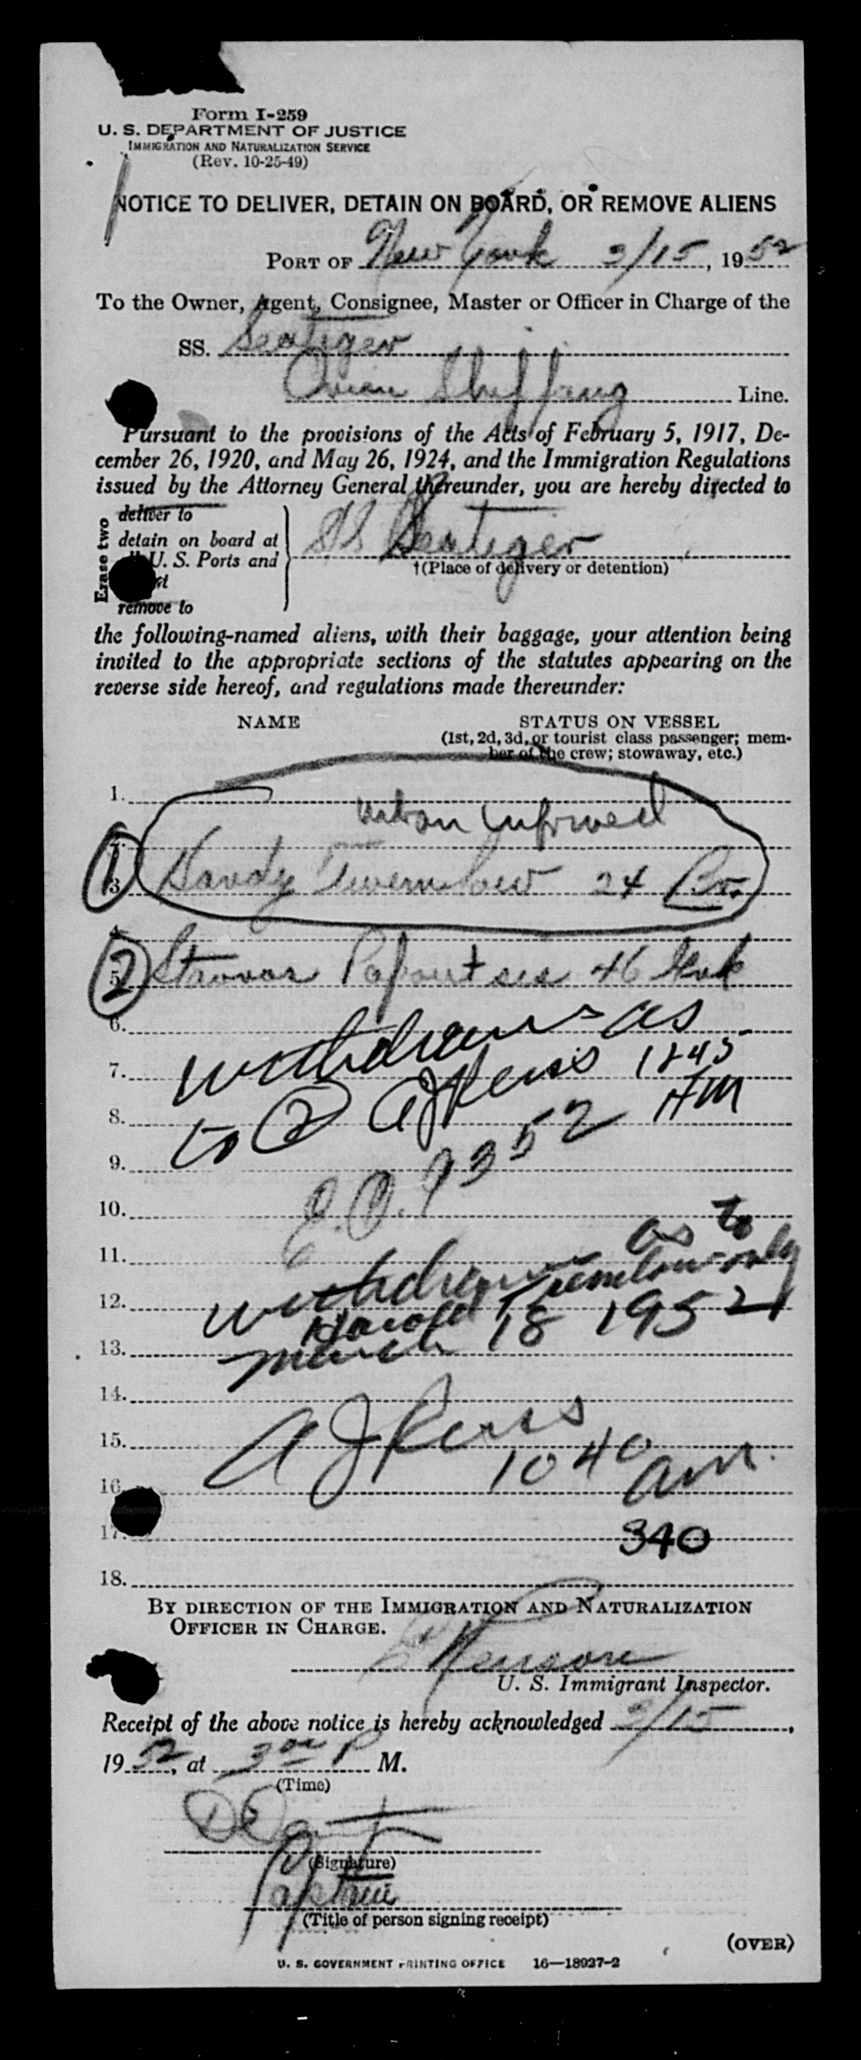 Form I-259
U. S. DEPARTMENT OF JUSTICE
IMMIGRATION AND NATURALIZATION SERVICE
(Rev. 10-25-49)
NOTICE TO DELIVER, DETAIN ON BOARD, OR REMOVE ALIENS
PORT OF New York 3/15, 1952
To the Owner, Agent, Consignee, Master or Officer in Charge of the
SS. Seatiger
Orion Shipping Line.
Pursuant to the provisions of the Acts of February 5, 1917, De-
cember 26, 1920, and May 26, 1924, and the Immigration Regulations
issued by the Attorney General thereunder, you are hereby directed to
Erase two
deliver to
detain on board at
U. S. Ports and
remove to
SS Seatiger
†(Place of delivery or detention)
the following-named aliens, with their baggage, your attention being
invited to the appropriate sections of the statutes appearing on the
reverse side hereof, and regulations made thereunder:
NAME STATUS ON VESSEL
(1st, 2d, 3d, or tourist class passenger; mem-
ber of the crew; stowaway, etc.)
1.
informed
1 3 24 Br.
2 5 Papoutsis 46
6. withdrawn as
7. to 2 AJ Reiss 1245
8. HM
9. E.O. 9352
10.
11. withdrawn as to
12. only
13. March 18 1952
14.
15. AJ Reiss
16. 10 40 am.
17. 340
18.
BY DIRECTION OF THE IMMIGRATION AND NATURALIZATION
OFFICER IN CHARGE.
U. S. Immigrant Inspector.
Receipt of the above notice is hereby acknowledged 3/15,
1952, at 3 00 P M.
(Time)
(Signature)
Captain
(Title of person signing receipt)
(OVER)
U. S. GOVERNMENT PRINTING OFFICE 16—18927-2